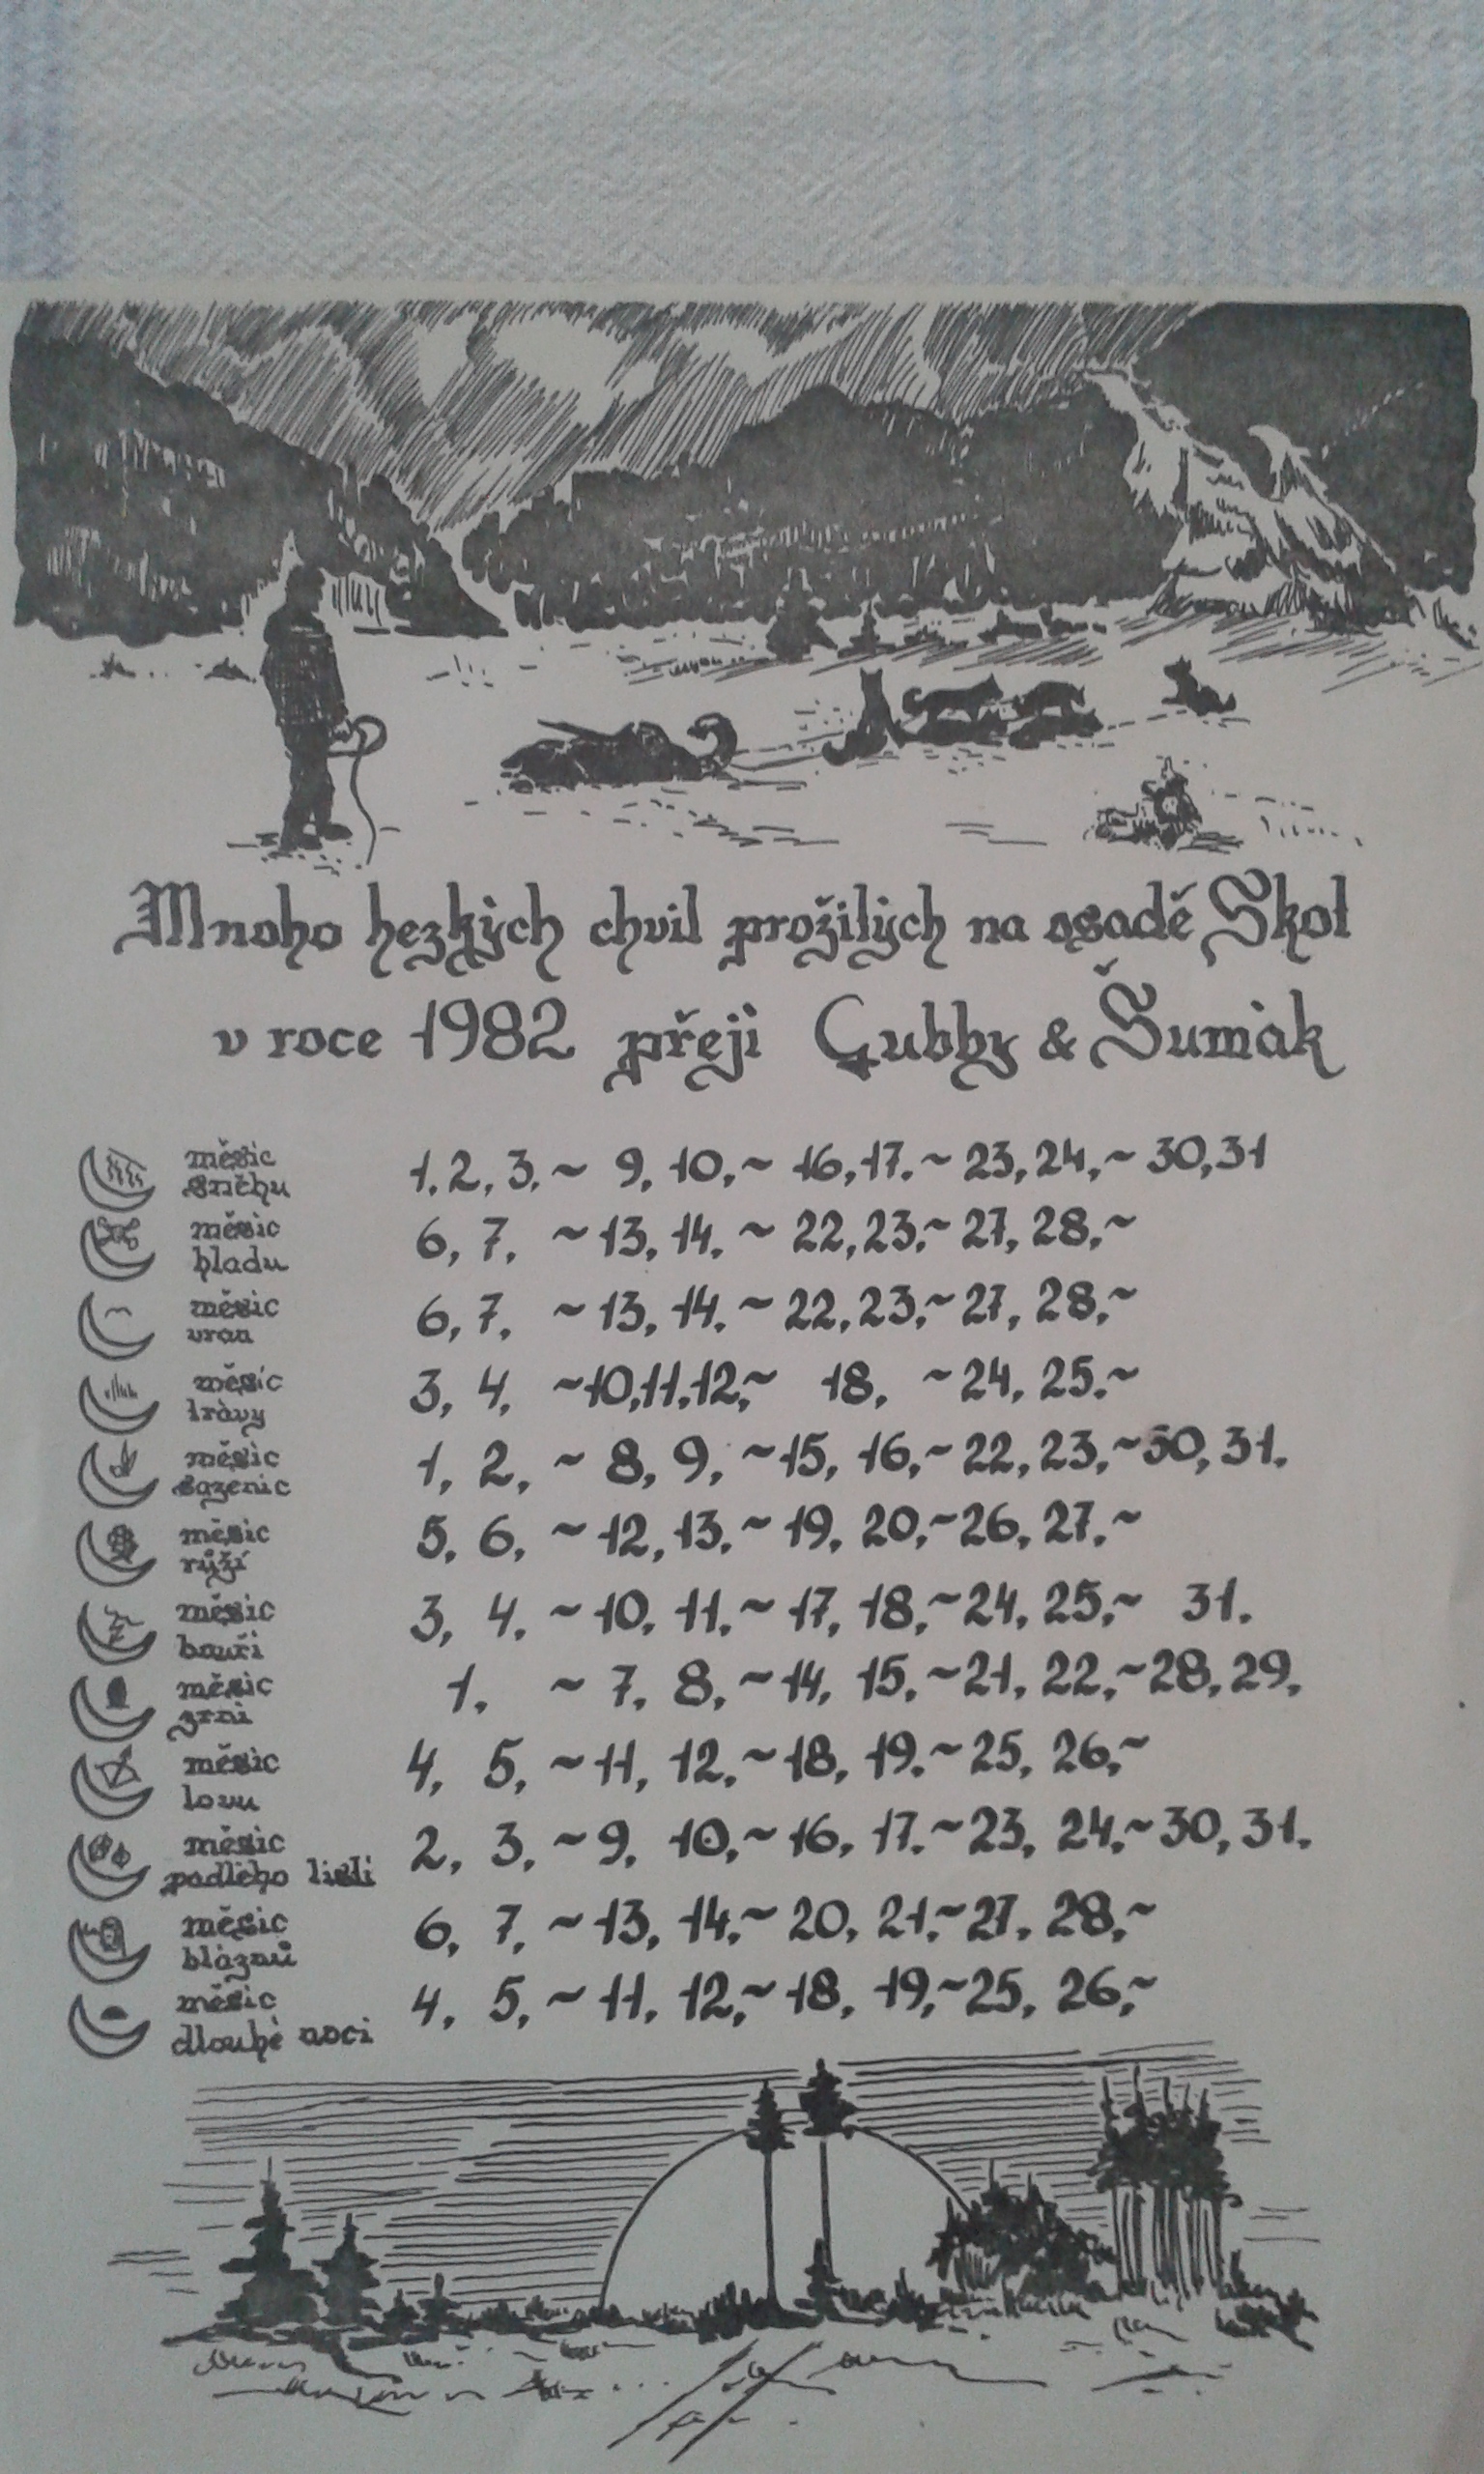 Mnoho hezkých chvil prožitých na osadě Skot
v roce 1982 přeji Gubby & Šumák
měsíc sněhu 1. 2, 3. ~ 9, 10, ~ 16, 17. ~ 23, 24, ~ 30, 31
měsíc hladu 6, 7. ~ 13, 14. ~ 22, 23. ~ 27, 28, ~
měsíc vran 6, 7. ~ 13, 14. ~ 22, 23, ~ 27, 28, ~
měsíc trávy 3, 4. ~ 10, 11, 12, ~ 18. ~ 24, 25. ~
měsíc sazenic 1, 2, ~ 8, 9, ~ 15, 16, ~ 22, 23, ~ 30, 31.
měsíc růží 5, 6, ~ 12, 13. ~ 19, 20, ~ 26, 27. ~
měsíc bouří 3, 4. ~ 10, 11. ~ 17, 18, ~ 24, 25, ~ 31.
měsíc zrní 1. ~ 7, 8, ~ 14, 15, ~ 21, 22, ~ 28, 29,
měsíc lovu 4, 5, ~ 11, 12, ~ 18, 19. ~ 25, 26, ~
měsíc padlého listí 2, 3, ~ 9, 10, ~ 16, 17. ~ 23, 24, ~ 30, 31.
měsíc bláznů 6, 7, ~ 13, 14, ~ 20, 21. ~ 27, 28, ~
měsíc dlouhé noci 4, 5, ~ 11, 12, ~ 18, 19, ~ 25, 26, ~